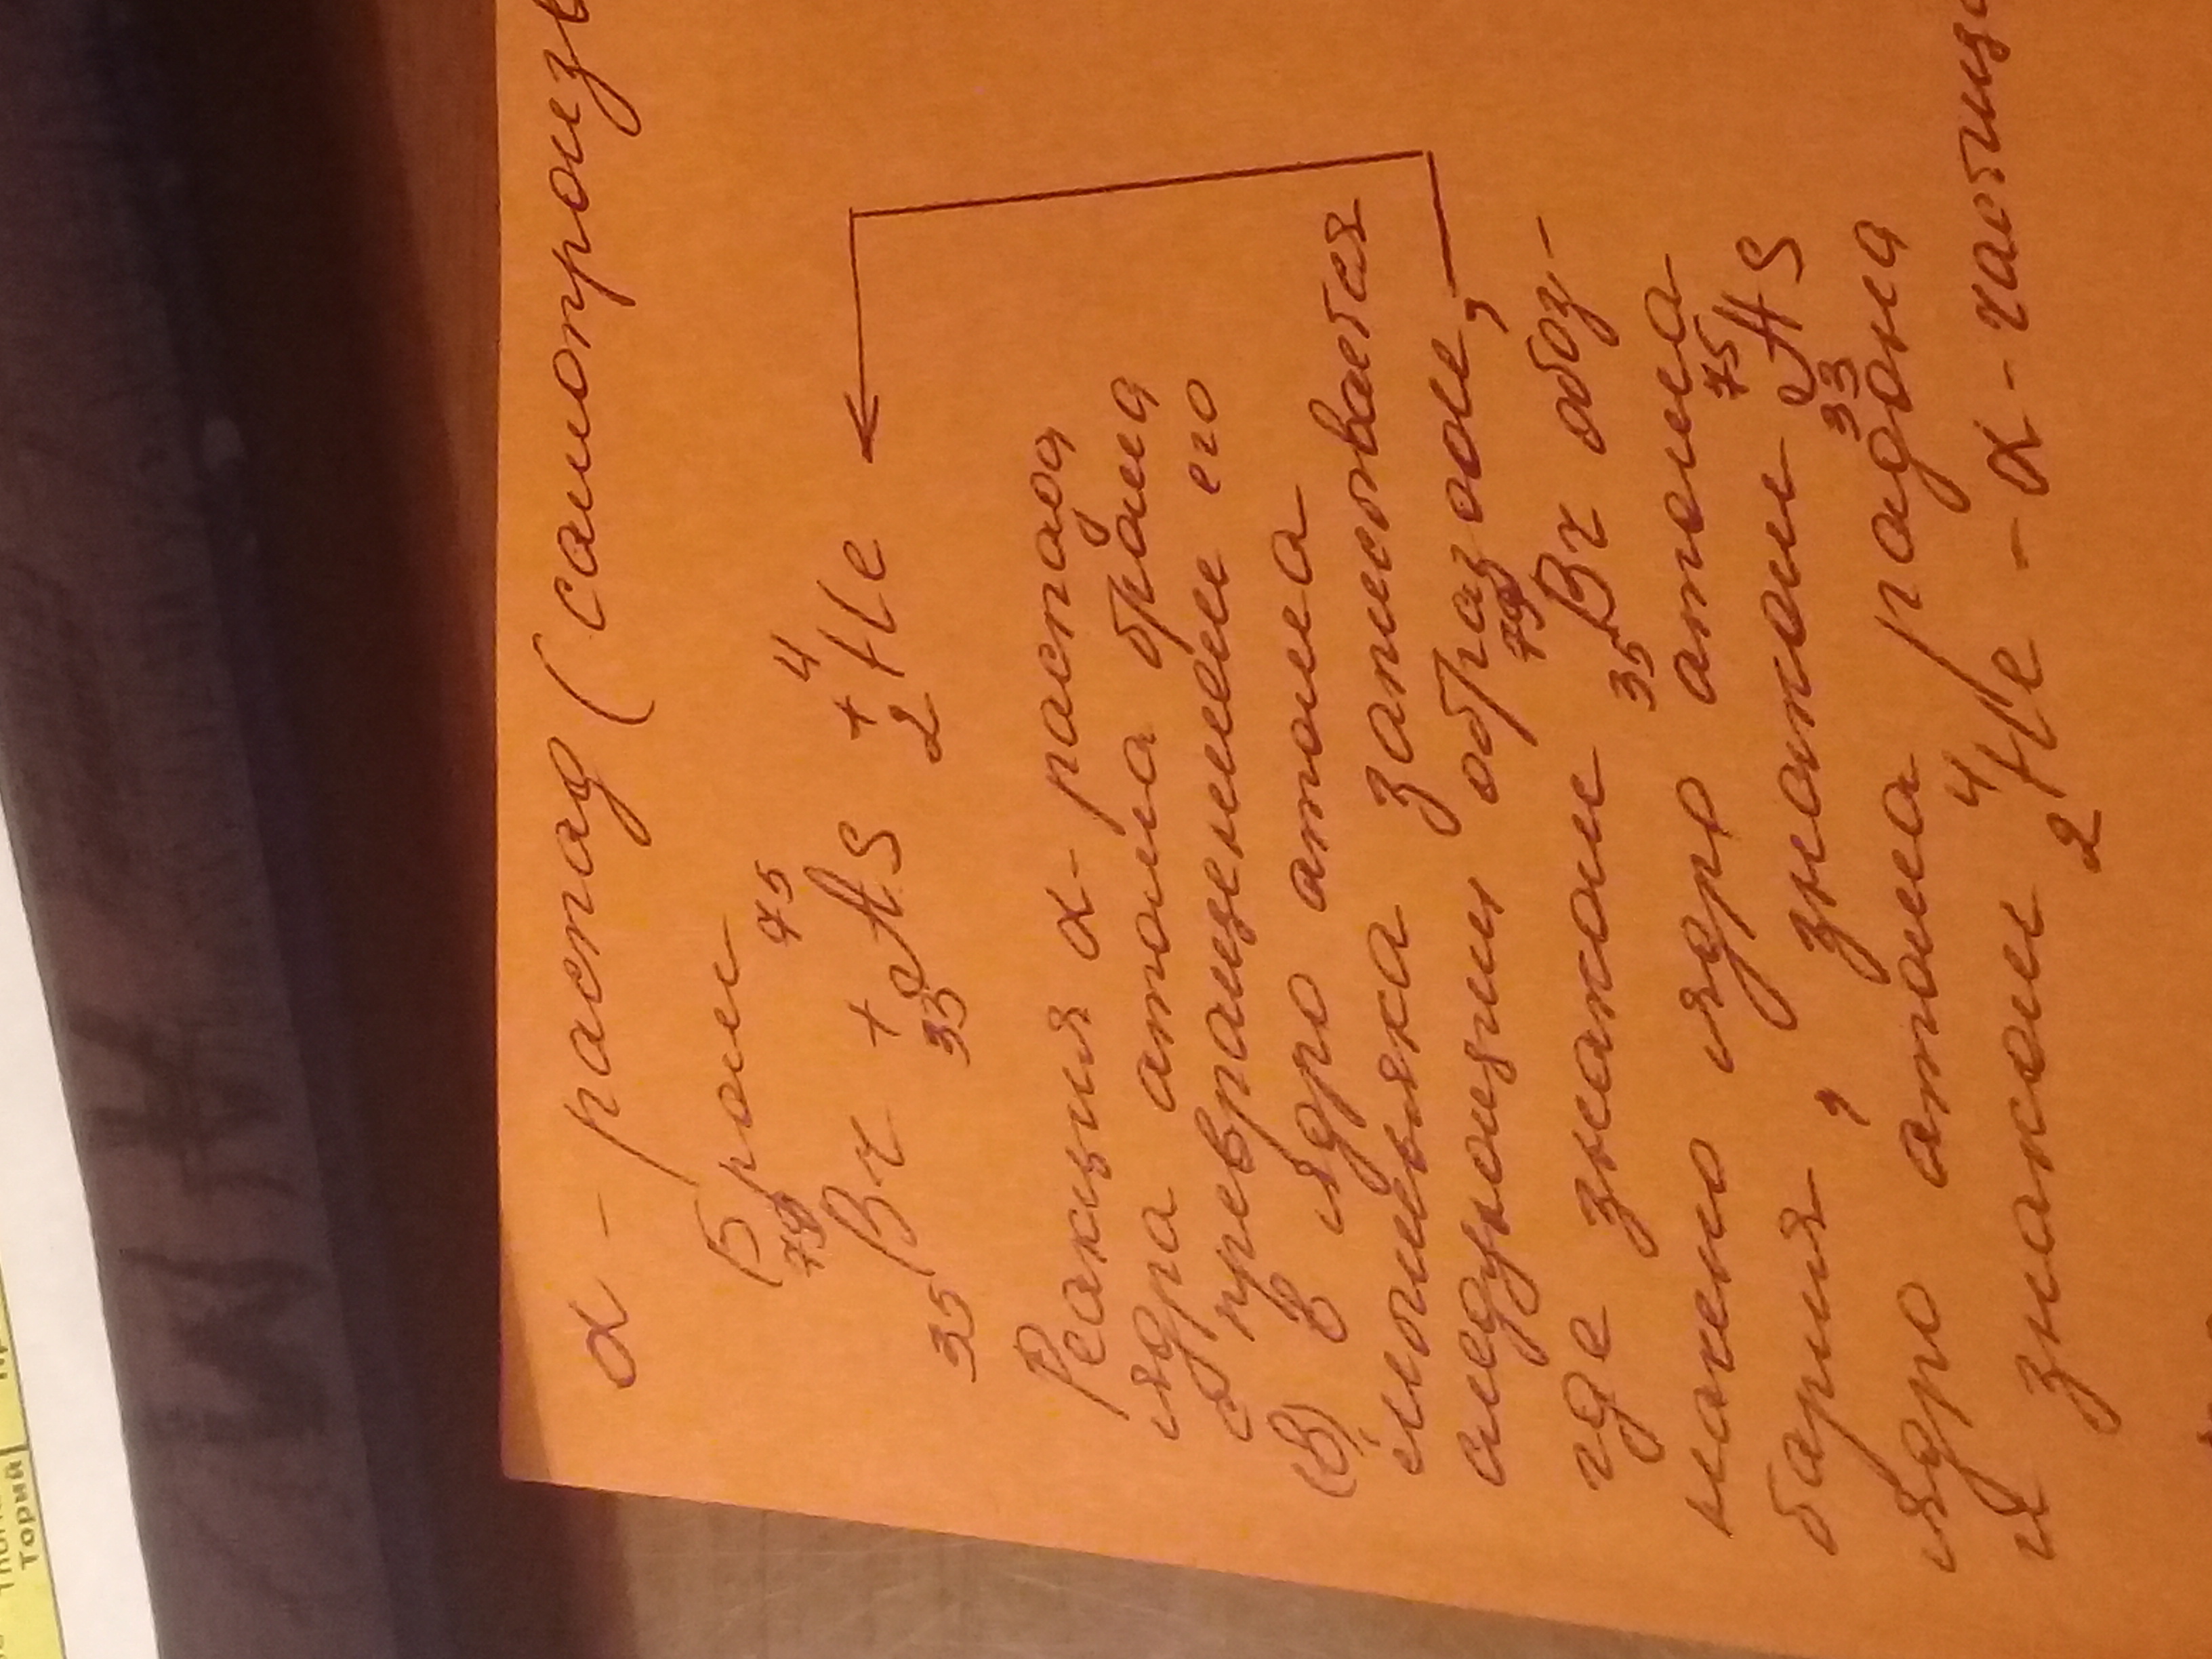 α - распад (самопроизв
Бром
⁷⁹₃₅Br + ⁷⁵₃₃As + ⁴₂He
Реакция α-распада
ядра атома брома
с превращением его
(в) в ядро атома
мышьяка записывается
следующим образом,
где знаком ⁷⁹₃₅Br обоз-
начено ядро атома
бария, знаком ⁷⁵₃₃As
ядро атома радона
и знаком ⁴₂He - α-частица
Торий